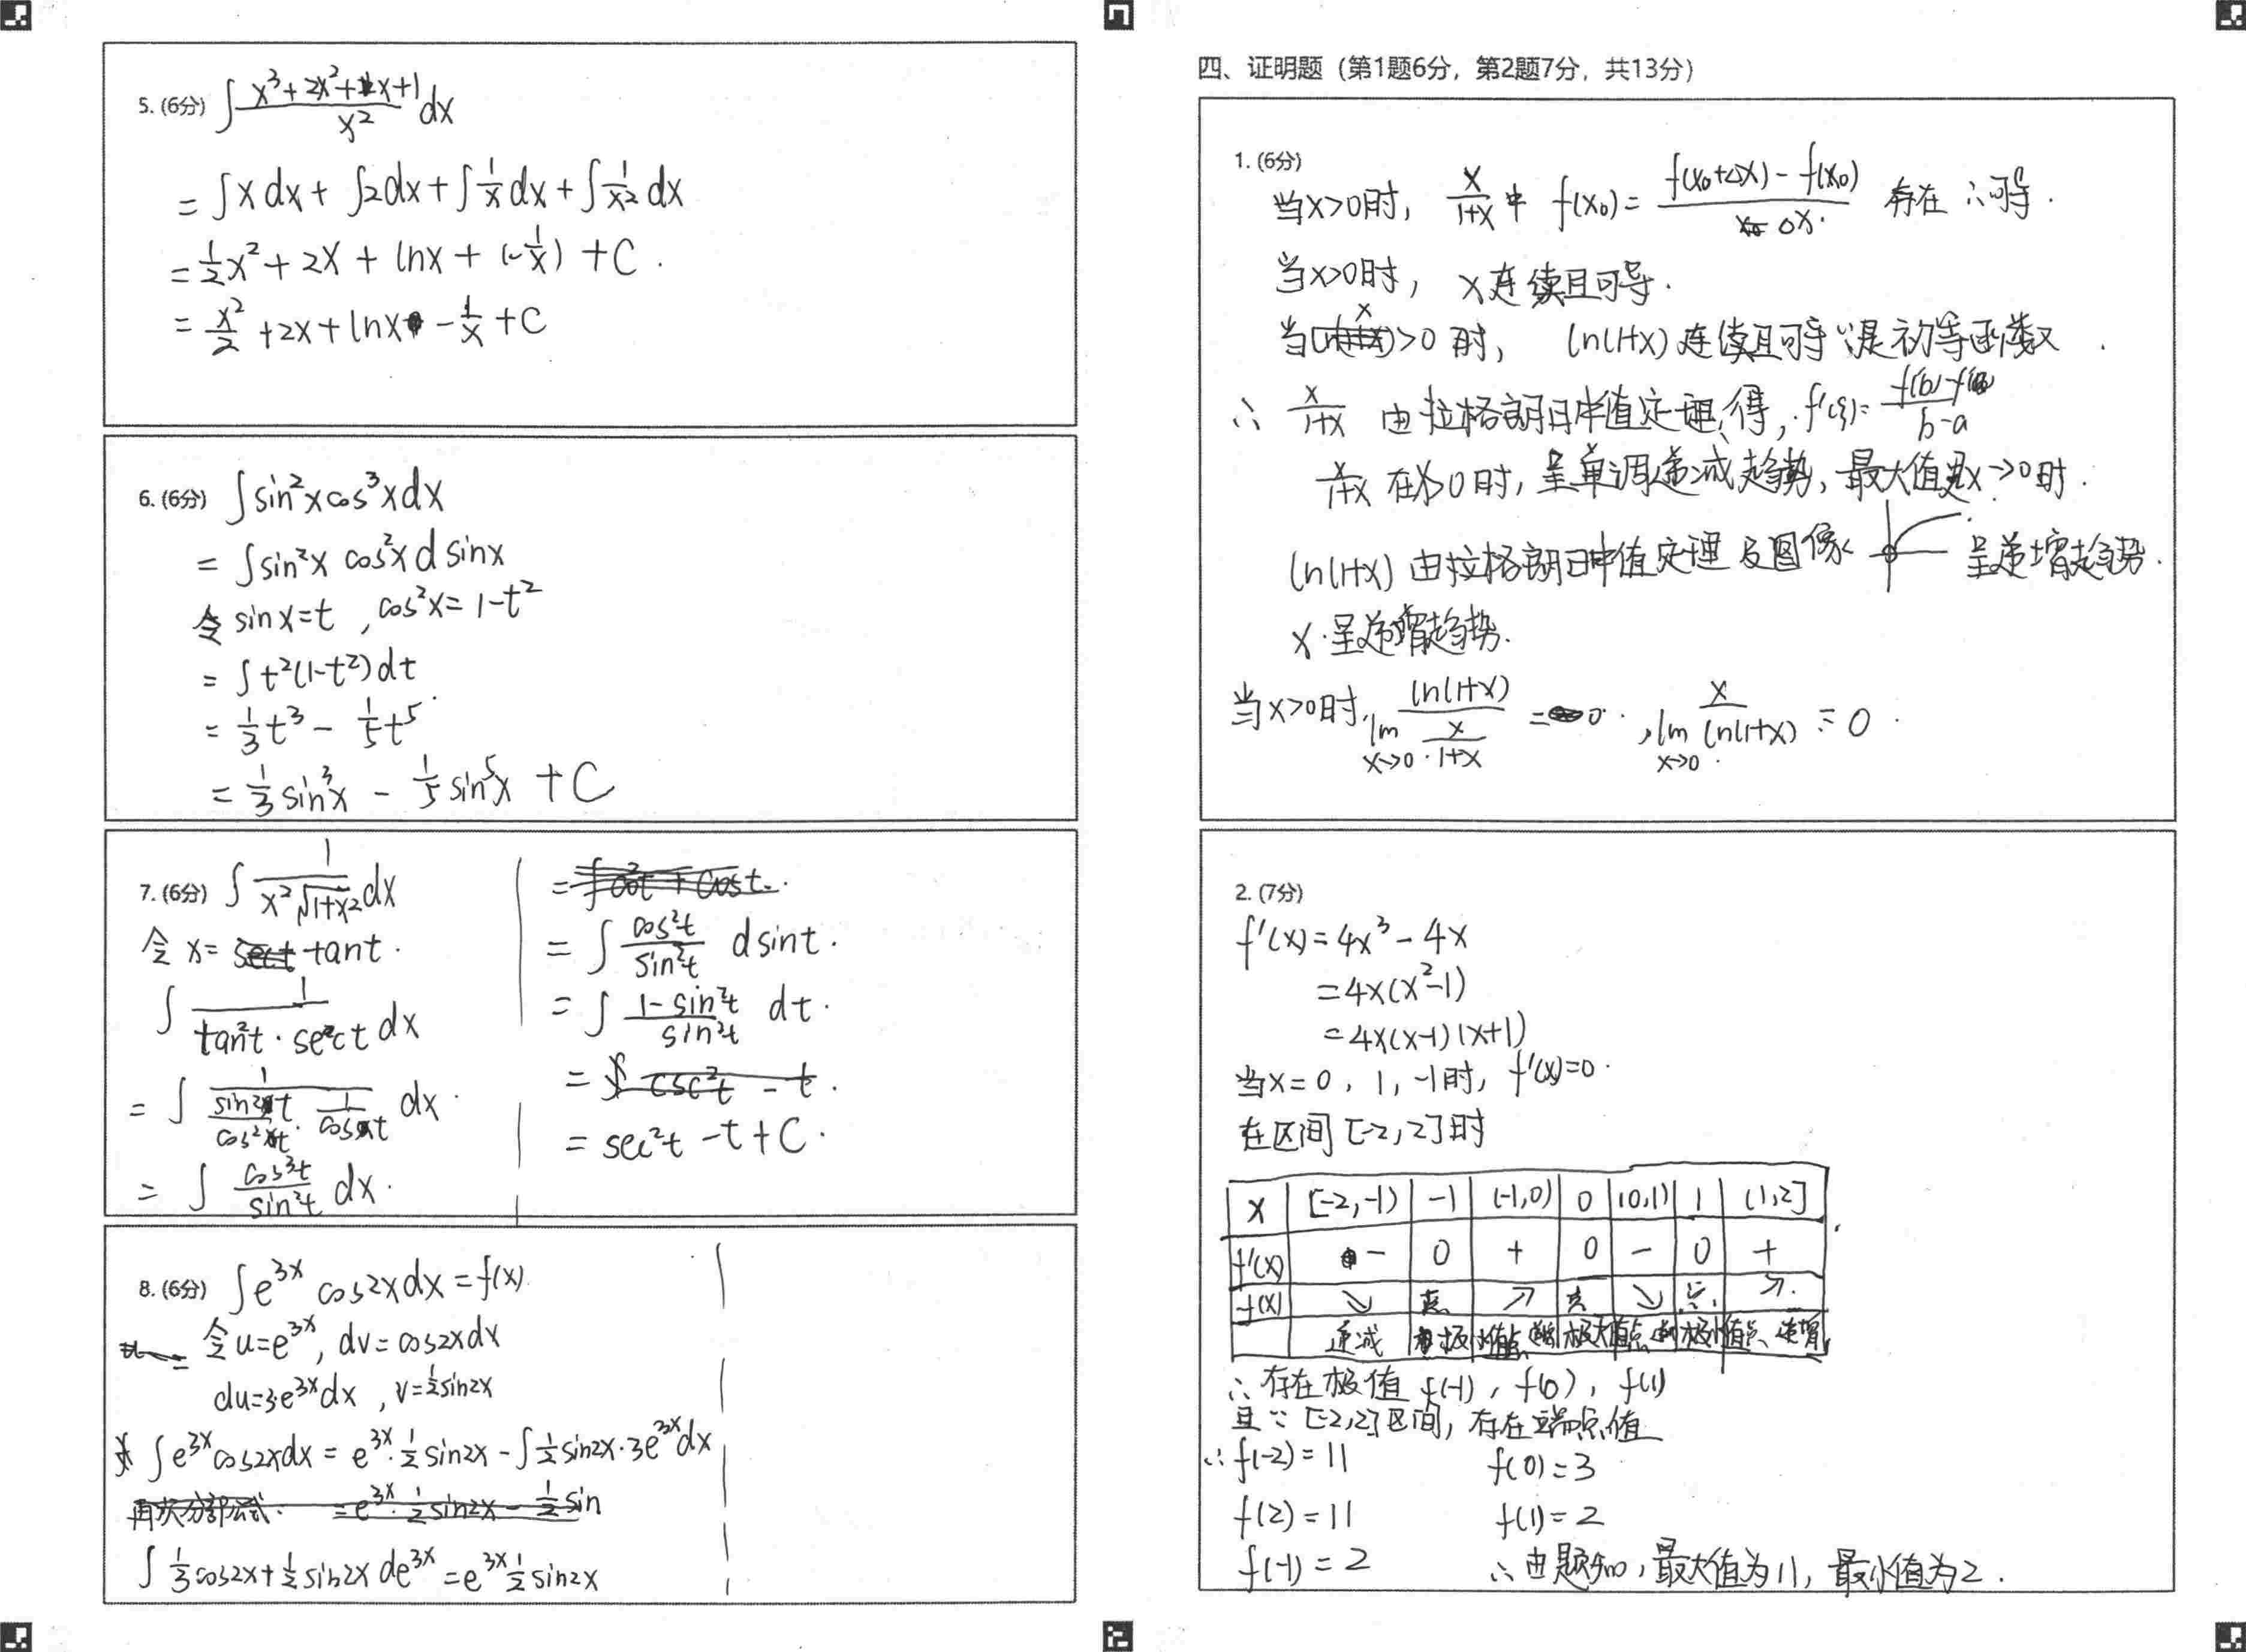 5. (6分) ∫ (x³+2x²+x+1)/x² dx
= ∫x dx + ∫2dx + ∫ 1/x dx + ∫ 1/x² dx
= 1/2 x² + 2x + lnx + (-1/x) + C .
= x²/2 + 2x + lnx - 1/x + C
6. (6分) ∫sin²x cos³x dx
= ∫sin²x cos²x d sinx
令 sinx=t , cos²x = 1-t²
= ∫t²(1-t²)dt
= 1/3 t³ - 1/5 t⁵
= 1/3 sin³x - 1/5 sin⁵x + C
7. (6分) ∫ 1/(x²√(1+x²)) dx
令 x= tant .
∫ 1/(tan²t · sect) dx
= ∫ 1/(sin²t/cos²t · 1/cost) dx .
= ∫ cos³t/sin²t dx .
= ∫ cos²t/sin²t d sint .
= ∫ (1-sin²t)/sin²t dt .
= sec²t - t + C .
8. (6分) ∫e³ˣ cos2xdx = f(x)
令u=e³ˣ, dv=cos2xdx
du=3·e³ˣdx , v=1/2 sin2x
∫e³ˣcos2xdx = e³ˣ·1/2 sin2x - ∫1/2 sin2x·3e³ˣdx
再次分部公式· = e³ˣ·1/2 sin2x - 1/2 sin
∫ 1/3 cos2x + 1/2 sin2x de³ˣ = e³ˣ 1/2 sin2x
四、证明题（第1题6分，第2题7分，共13分）
1. (6分)
当x>0时, x/(1+x) 中 f(x₀)= (f(x₀+Δx)-f(x₀))/Δx 存在 ∴可导.
当x>0时, x连续且可导.
当x>0时, ln(1+x)连续且可导∵是初等函数 .
∴ x/(1+x) 由拉格朗日中值定理,得, f'(ξ)= (f(b)-f(a))/(b-a)
x/(1+x) 在x>0时, 呈单调递减趋势, 最大值是x→0时.
ln(1+x)由拉格朗日中值定理及图像 呈递增趋势.
x·呈递增趋势.
当x>0时, lim x→0 ln(1+x)/(x/(1+x)) = 0 · , lim x→0 x/ln(1+x) = 0 .
2. (7分)
f'(x)=4x³-4x
=4x(x²-1)
=4x(x-1)(x+1)
当x=0, 1, -1时, f'(x)=0 .
在区间[-2,2]时
x [-2,-1) -1 (-1,0) 0 (0,1) 1 (1,2]
f'(x) - 0 + 0 - 0 +
f(x) ↘ ↗ ↘ ↗
递减 极小值点 极大值点 极小值点 递增
∴存在极值 f(-1), f(0), f(1)
且∵[-2,2]区间, 存在端点值
∴f(-2)=11 f(0)=3
f(2)=11 f(1)=2
f(-1)=2 ∴由题知, 最大值为11, 最小值为2.